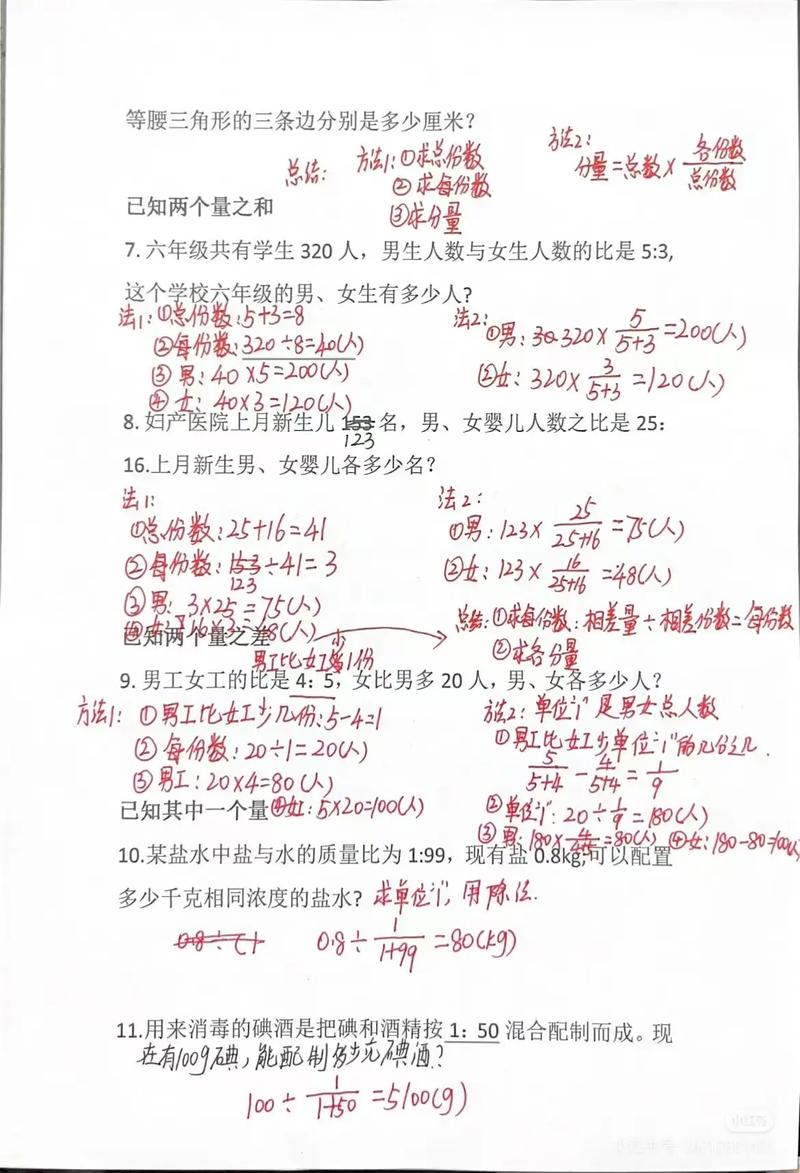 等腰三角形的三条边分别是多少厘米？
总结： 方法1：①求总份数
②求每份数
③求分量
方法2：
分量=总数×各份数/总份数
已知两个量之和
7. 六年级共有学生 320 人，男生人数与女生人数的比是 5:3,
这个学校六年级的男、女生有多少人?
法1：①总份数：5+3=8
②每份数：320÷8=40(人)
③男：40×5=200(人)
④女：40×3=120(人)
法2：
①男：320×5/(5+3)=200(人)
②女：320×3/(5+3)=120(人)
8. 妇产医院上月新生儿 153 名，男、女婴儿人数之比是 25：
123
16.上月新生男、女婴儿各多少名？
法1：
①总份数：25+16=41
②每份数：153÷41=3
123
③男：3×25=75(人)
④女：16×3=48(人)
法2：
①男：123×25/(25+16)=75(人)
②女：123×16/(25+16)=48(人)
已知两个量之差
少
男工比女工1份
总结：①求每份数：相差量÷相差份数=每份数
②求各分量
9. 男工女工的比是 4：5，女比男多 20 人，男、女各多少人？
方法1：①男工比女工少几份：5-4=1
②每份数：20÷1=20(人)
③男工：20×4=80(人)
④女：5×20=100(人)
方法2：单位“1”是男女总人数
①男工比女工少单位“1”的几分之几.
5/(5+4)-4/(5+4)=1/9
②单位“1”：20÷1/9=180(人)
③男：180×4/(4+5)=80(人) ④女：180-80=100(人)
已知其中一个量
10.某盐水中盐与水的质量比为 1:99，现有盐 0.8kg,可以配置
多少千克相同浓度的盐水? 求单位“1”，用除法.
0.8÷(1
0.8÷1/(1+99)=80(kg)
11.用来消毒的碘酒是把碘和酒精按 1：50 混合配制而成。现
在有100g碘，能配制多少克碘酒？
100÷1/(1+50)=5100(g)
小红书